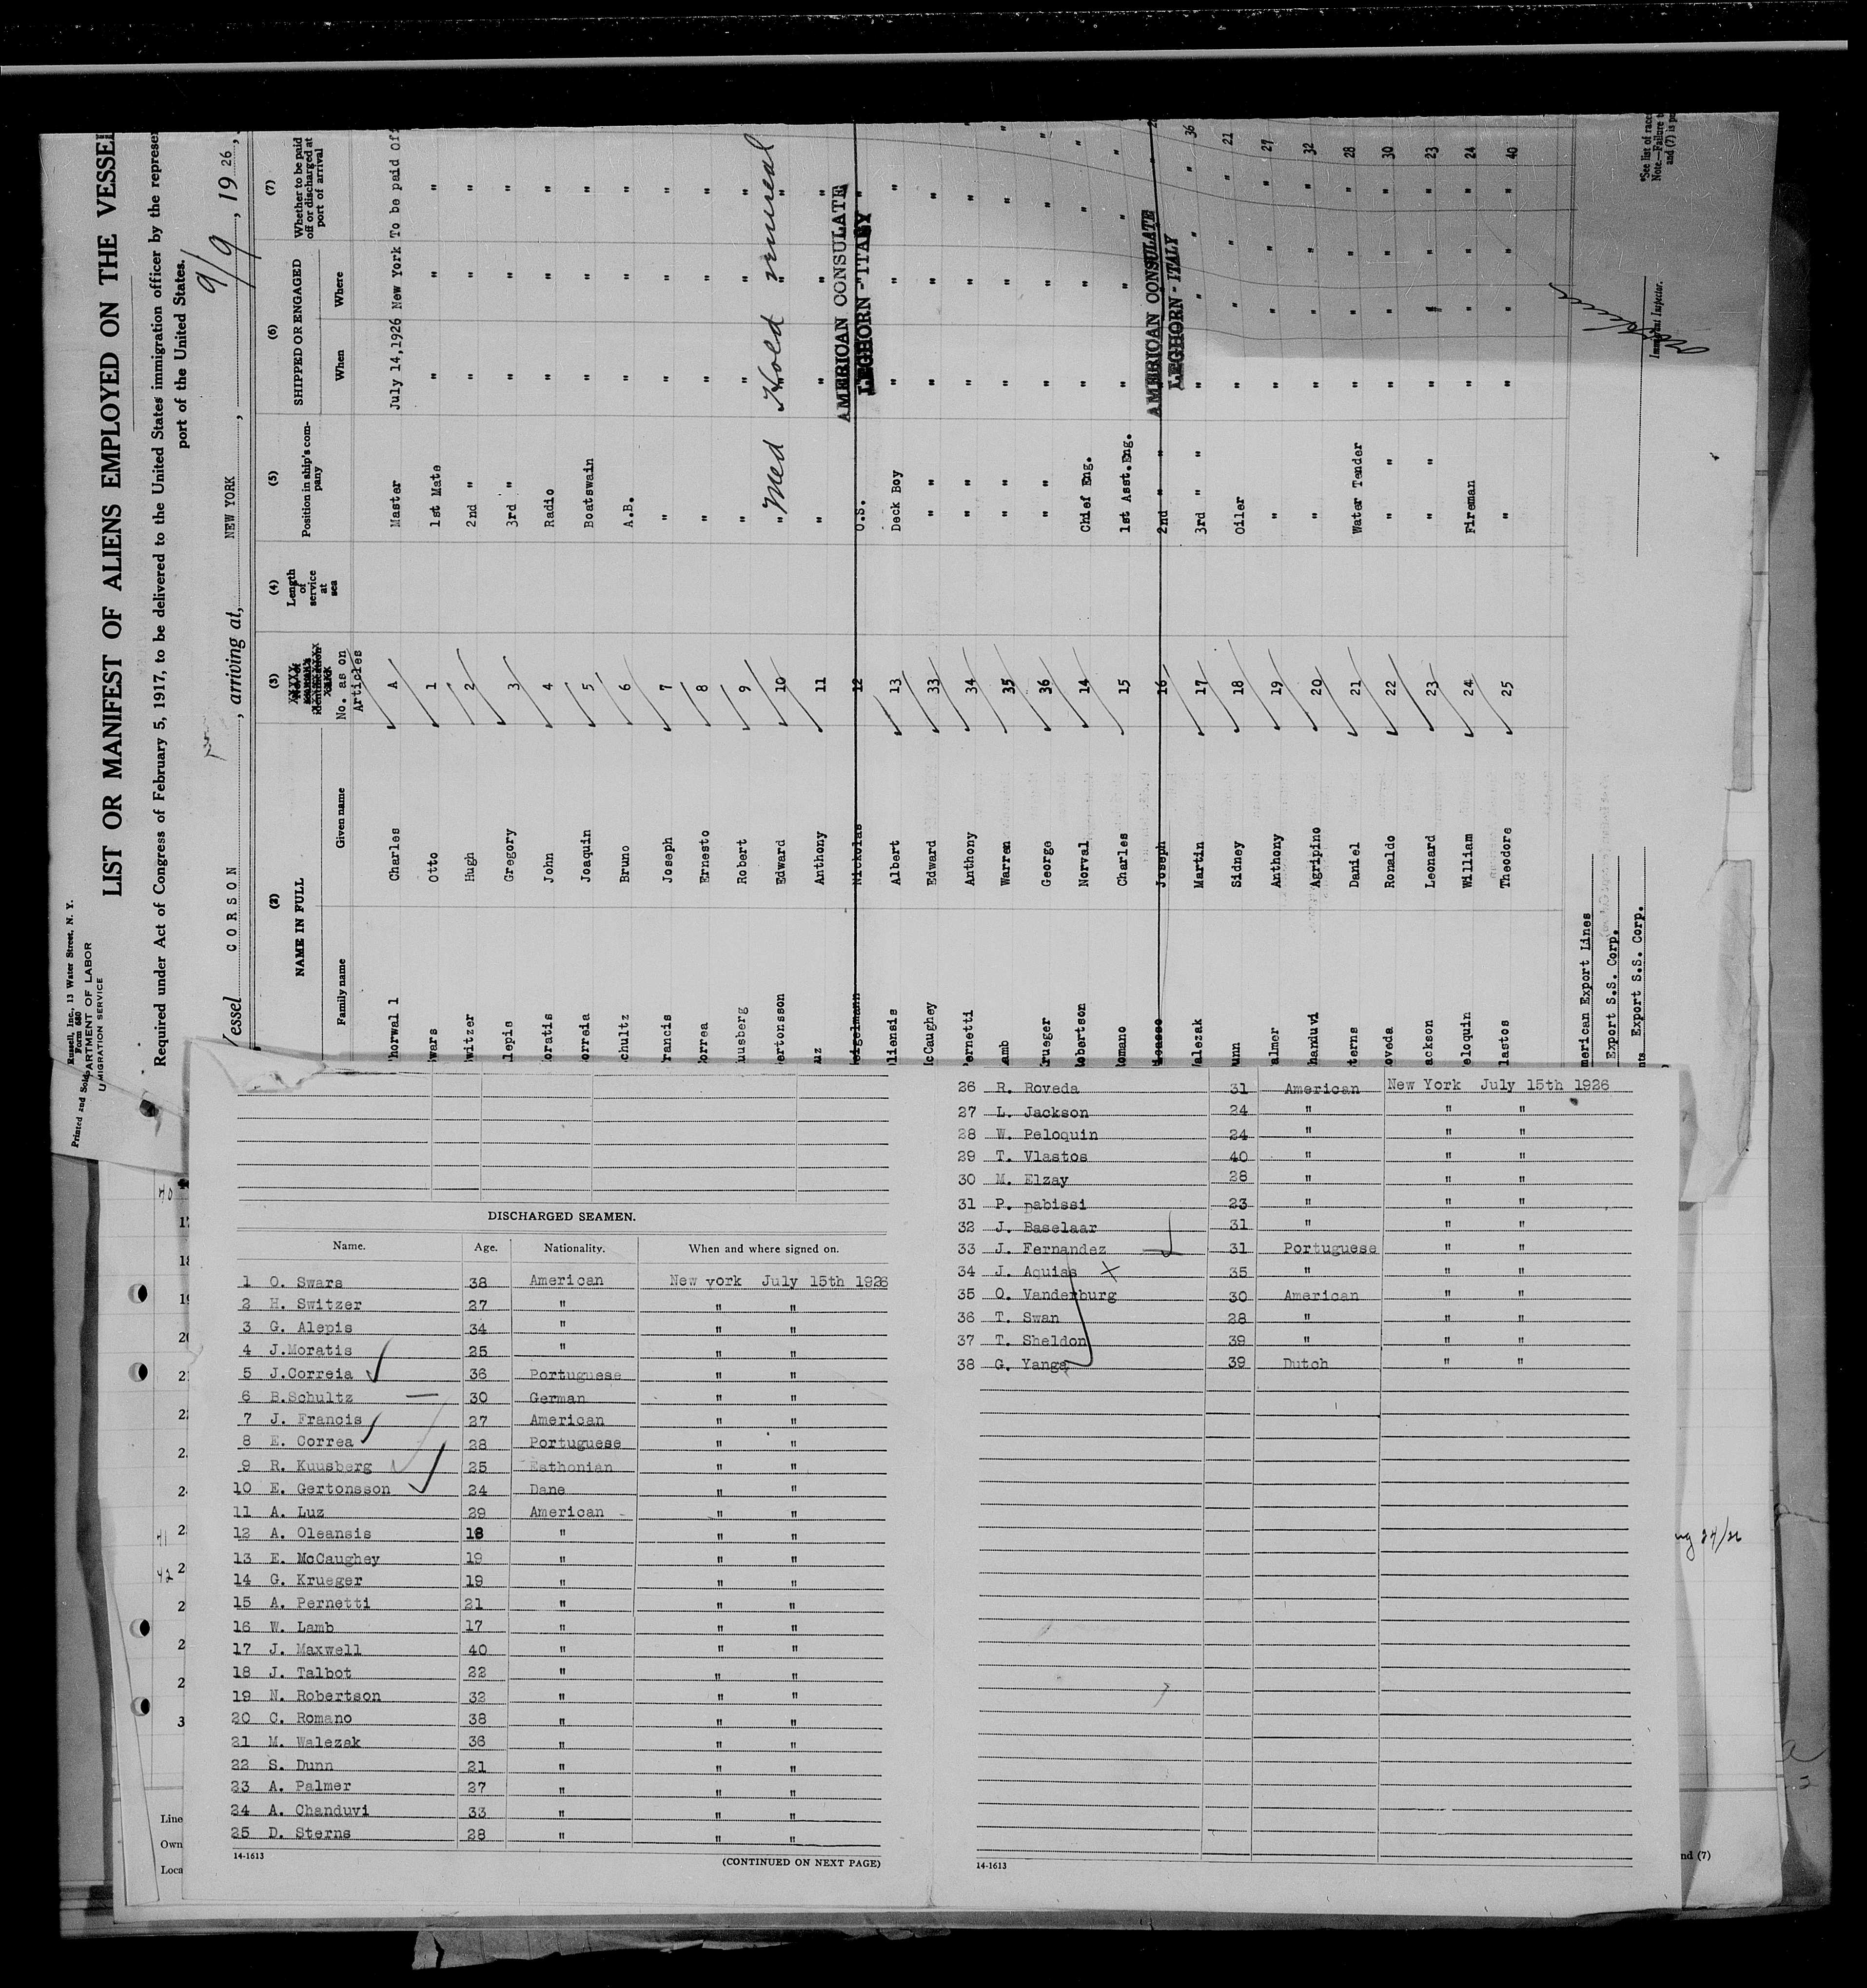 Printed and Sold Russell, Inc., 13 Water Street, N. Y.
Form 680
DEPARTMENT OF LABOR
IMMIGRATION SERVICE
LIST OR MANIFEST OF ALIENS EMPLOYED ON THE VESSEL
Required under Act of Congress of February 5, 1917, to be delivered to the United States immigration officer by the represen
port of the United States.
Vessel CORSON, arriving at, NEW YORK, 9/9, 1926,
(2) (3) (4) (5) (6) (7)
NAME IN FULL
Family name Given name
No. as on Articles
Length of service at sea
Position in ship's company
SHIPPED OR ENGAGED
When Where
Whether to be paid off or discharged at port of arrival
horwall Charles A Master July 14,1926 New York To be paid off
wars Otto 1 1st Mate " " "
witzer Hugh 2 2nd " " " "
lepis Gregory 3 3rd " " " "
oratis John 4 Radio " " "
orreia Joaquin 5 Boatswain " " "
chultz Bruno 6 A.B. " " "
rancis Joseph 7 " " " "
orrea Ernesto 8 " " " "
uusberg Robert 9 " " " "
ertonsson Edward 10 " Med Hold
uz Anthony 11 " " " "
eigelmann Nickolas 12 O.S. "
AMERICAN CONSULATE
LEGHORN - ITALY
liensis Albert 13 Deck Boy " " "
McCaughey Edward 33 " " " "
ernetti Anthony 34 " " " "
amb Warren 35 " " " "
rueger George 36 " " " "
obertson Norval 14 Chief Eng. " " "
omano Charles 15 1st Asst.Eng. " " "
Joseph 16 2nd " "
AMERICAN CONSULATE
LEGHORN - ITALY
alezak Martin 17 3rd " " " " " 36
unn Sidney 18 Oiler " " " 21
almer Anthony 19 " " " " 27
handuvi Agripino 20 " " " " 32
terns Daniel 21 Water Tender " " " 28
oveda Ronaldo 22 " " " " " 30
ackson Leonard 23 " " " " " 23
eloquin William 24 Fireman " " " 24
lastos Theodore 25 " " " " 40
merican Export Lines
Export S.S. Corp.
Export S.S. Corp.
Immigrant Inspector.
*See list of race
Note.—Failure t
and (7) is pu
DISCHARGED SEAMEN.
Name. Age. Nationality. When and where signed on.
1 O. Swars 38 American New york July 15th 1926
2 H. Switzer 27 " " "
3 G. Alepis 34 " " "
4 J.Moratis 25 " " "
5 J.Correia 36 Portuguese " "
6 B.Schultz 30 German " "
7 J. Francis 27 American " "
8 E. Correa 28 Portuguese " "
9 R. Kuusberg 25 Esthonian " "
10 E. Gertonsson 24 Dane " "
11 A. Luz 29 American " "
12 A. Oleansis 18 " " "
13 E. McCaughey 19 " " "
14 G. Krueger 19 " " "
15 A. Pernetti 21 " " "
16 W. Lamb 17 " " "
17 J. Maxwell 40 " " "
18 J. Talbot 22 " " "
19 N. Robertson 32 " " "
20 C. Romano 38 " " "
21 M. Walezak 36 " " "
22 S. Dunn 21 " " "
23 A. Palmer 27 " " "
24 A. Chanduvi 33 " " "
25 D. Sterns 28 " " "
14-1613 (CONTINUED ON NEXT PAGE)
26 R. Roveda 31 American New York July 15th 1926
27 L. Jackson 24 " " "
28 W. Peloquin 24 " " "
29 T. Vlastos 40 " " "
30 M. Elzay 28 " " "
31 P. Dabissi 23 " " "
32 J. Baselaar 31 " " "
33 J. Fernandez 31 Portuguese " "
34 J. Aquias 35 " " "
35 O. Vanderburg 30 American " "
36 T. Swan 28 " " "
37 T. Sheldon 39 " " "
38 G. Yanga 39 Dutch " "
14-1613
40
41
42
Line
Own
Loca
24/26
nd (7)